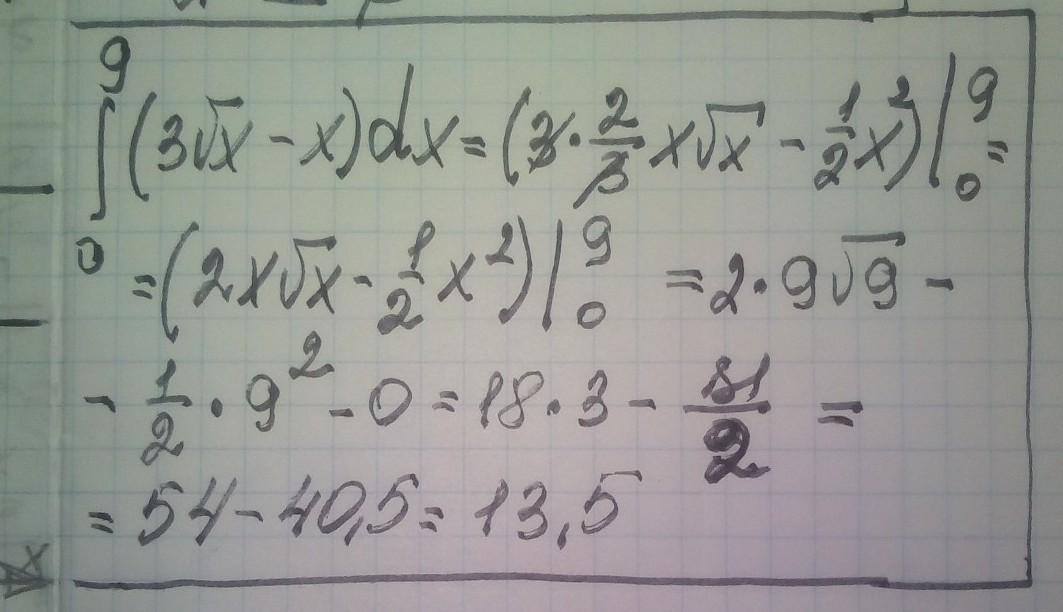 ∫₀⁹ (3√x - x)dx = (3 · 2/3 x√x - 1/2 x²)|₀⁹ =
= (2x√x - 1/2 x²)|₀⁹ = 2 · 9√9 -
- 1/2 · 9² - 0 = 18 · 3 - 81/2 =
= 54 - 40,5 = 13,5